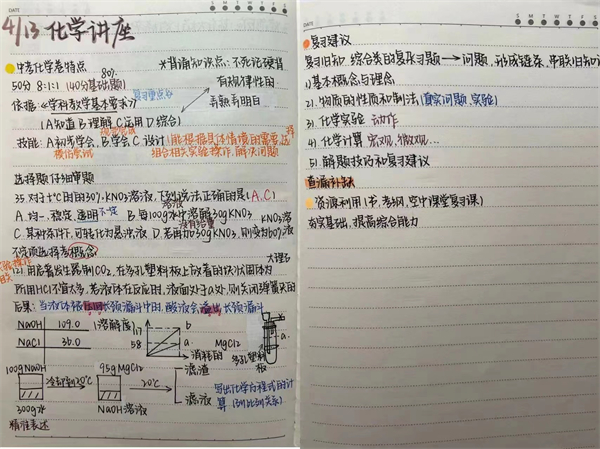 DATE
S M T W T F S
4/13 化学讲座
中考化学卷特点
*背诵知识点:不死记硬背
80%
50分 8:1:1 (40分基础题)
有规律性的
依据:《学科教学基本要求》 复习重点
看题看明白
(A知道 B理解 C运用 D综合)
技能: A初步学会, B学会 C.设计 (能根据具体情境的需要,选择
组合相关实验操作,解决问题
选择题仔细审题
35.对于t℃时的30% KNO3溶液,下列说法正确的是(A、C)
A.均一、稳定、透明 B.每100g水中溶解30g KNO3
C.某种条件下,可转化为悬浊液 D.若再加30g KNO3,则变为60%溶液
不定项选择考概念
大理石
(2).用启普发生器制CO2,在多孔塑料板上放着的块状固体为
所用HCl不宜太多,若液体在反应时,液面处于a处,则关闭弹簧夹的
后果: 当液体被压回长颈漏斗中时,酸液会溢出长颈漏斗
NaOH 109.0
NaCl 36.0
溶解度
117
58
b
a
消耗的
MgCl2
a
多孔塑料板
100g NaOH
冷却到20℃
300g水
95g MgCl2
NaOH溶液
20℃
滤渣
滤液
写出化学方程式的计
算
精准表述
DATE
S M T W T F S
复习建议
复习旧知 综合类的复习题→问题,形成链条,串联旧知
1)基本概念与理念
2).物质的性质和制法(真实问题.实验)
3).化学实验 动作
4).化学计算 宏观,微观...
5).解题技巧和复习建议
查漏补缺
资源利用(书,考纲,空中课堂复习课)
夯实基础,提高综合能力